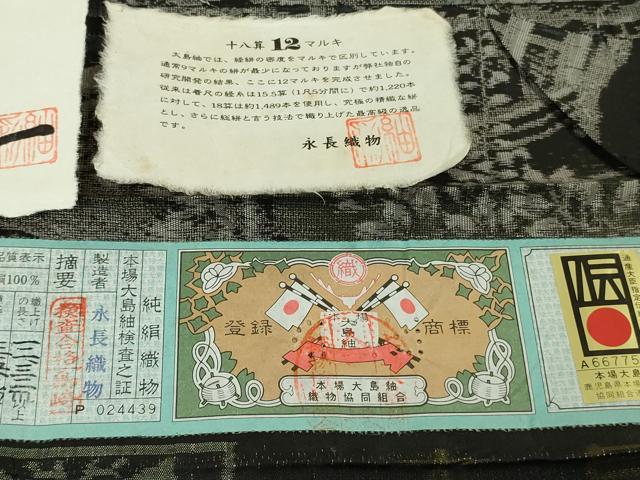 十八算 12 マルキ
大島紬では、経絣の密度をマルキで区別しています。
通常9マルキの絣が最少になっておりますが弊社独自の
研究開発の結果、ここに12マルキを完成させました。
従来は巻尺の経糸は15.5算(1尺5分間に)で約1,220本
に対して、18算は約1,489本を使用し、究極の精緻な絣
とし、さらに総絣と言う技法で織り上げた最高級の逸品
です。
永長織物
紬
品質表示
100%
摘要
織上げ
の長さ
検査合格
製造者
永長織物
本場大島紬検査之証
純絹織物
P 024439
織
登録
商標
本場
大島
紬
本場大島紬
織物協同組合
通産大臣指定
A66775
本場大島紬
鹿児島県本
協同組合